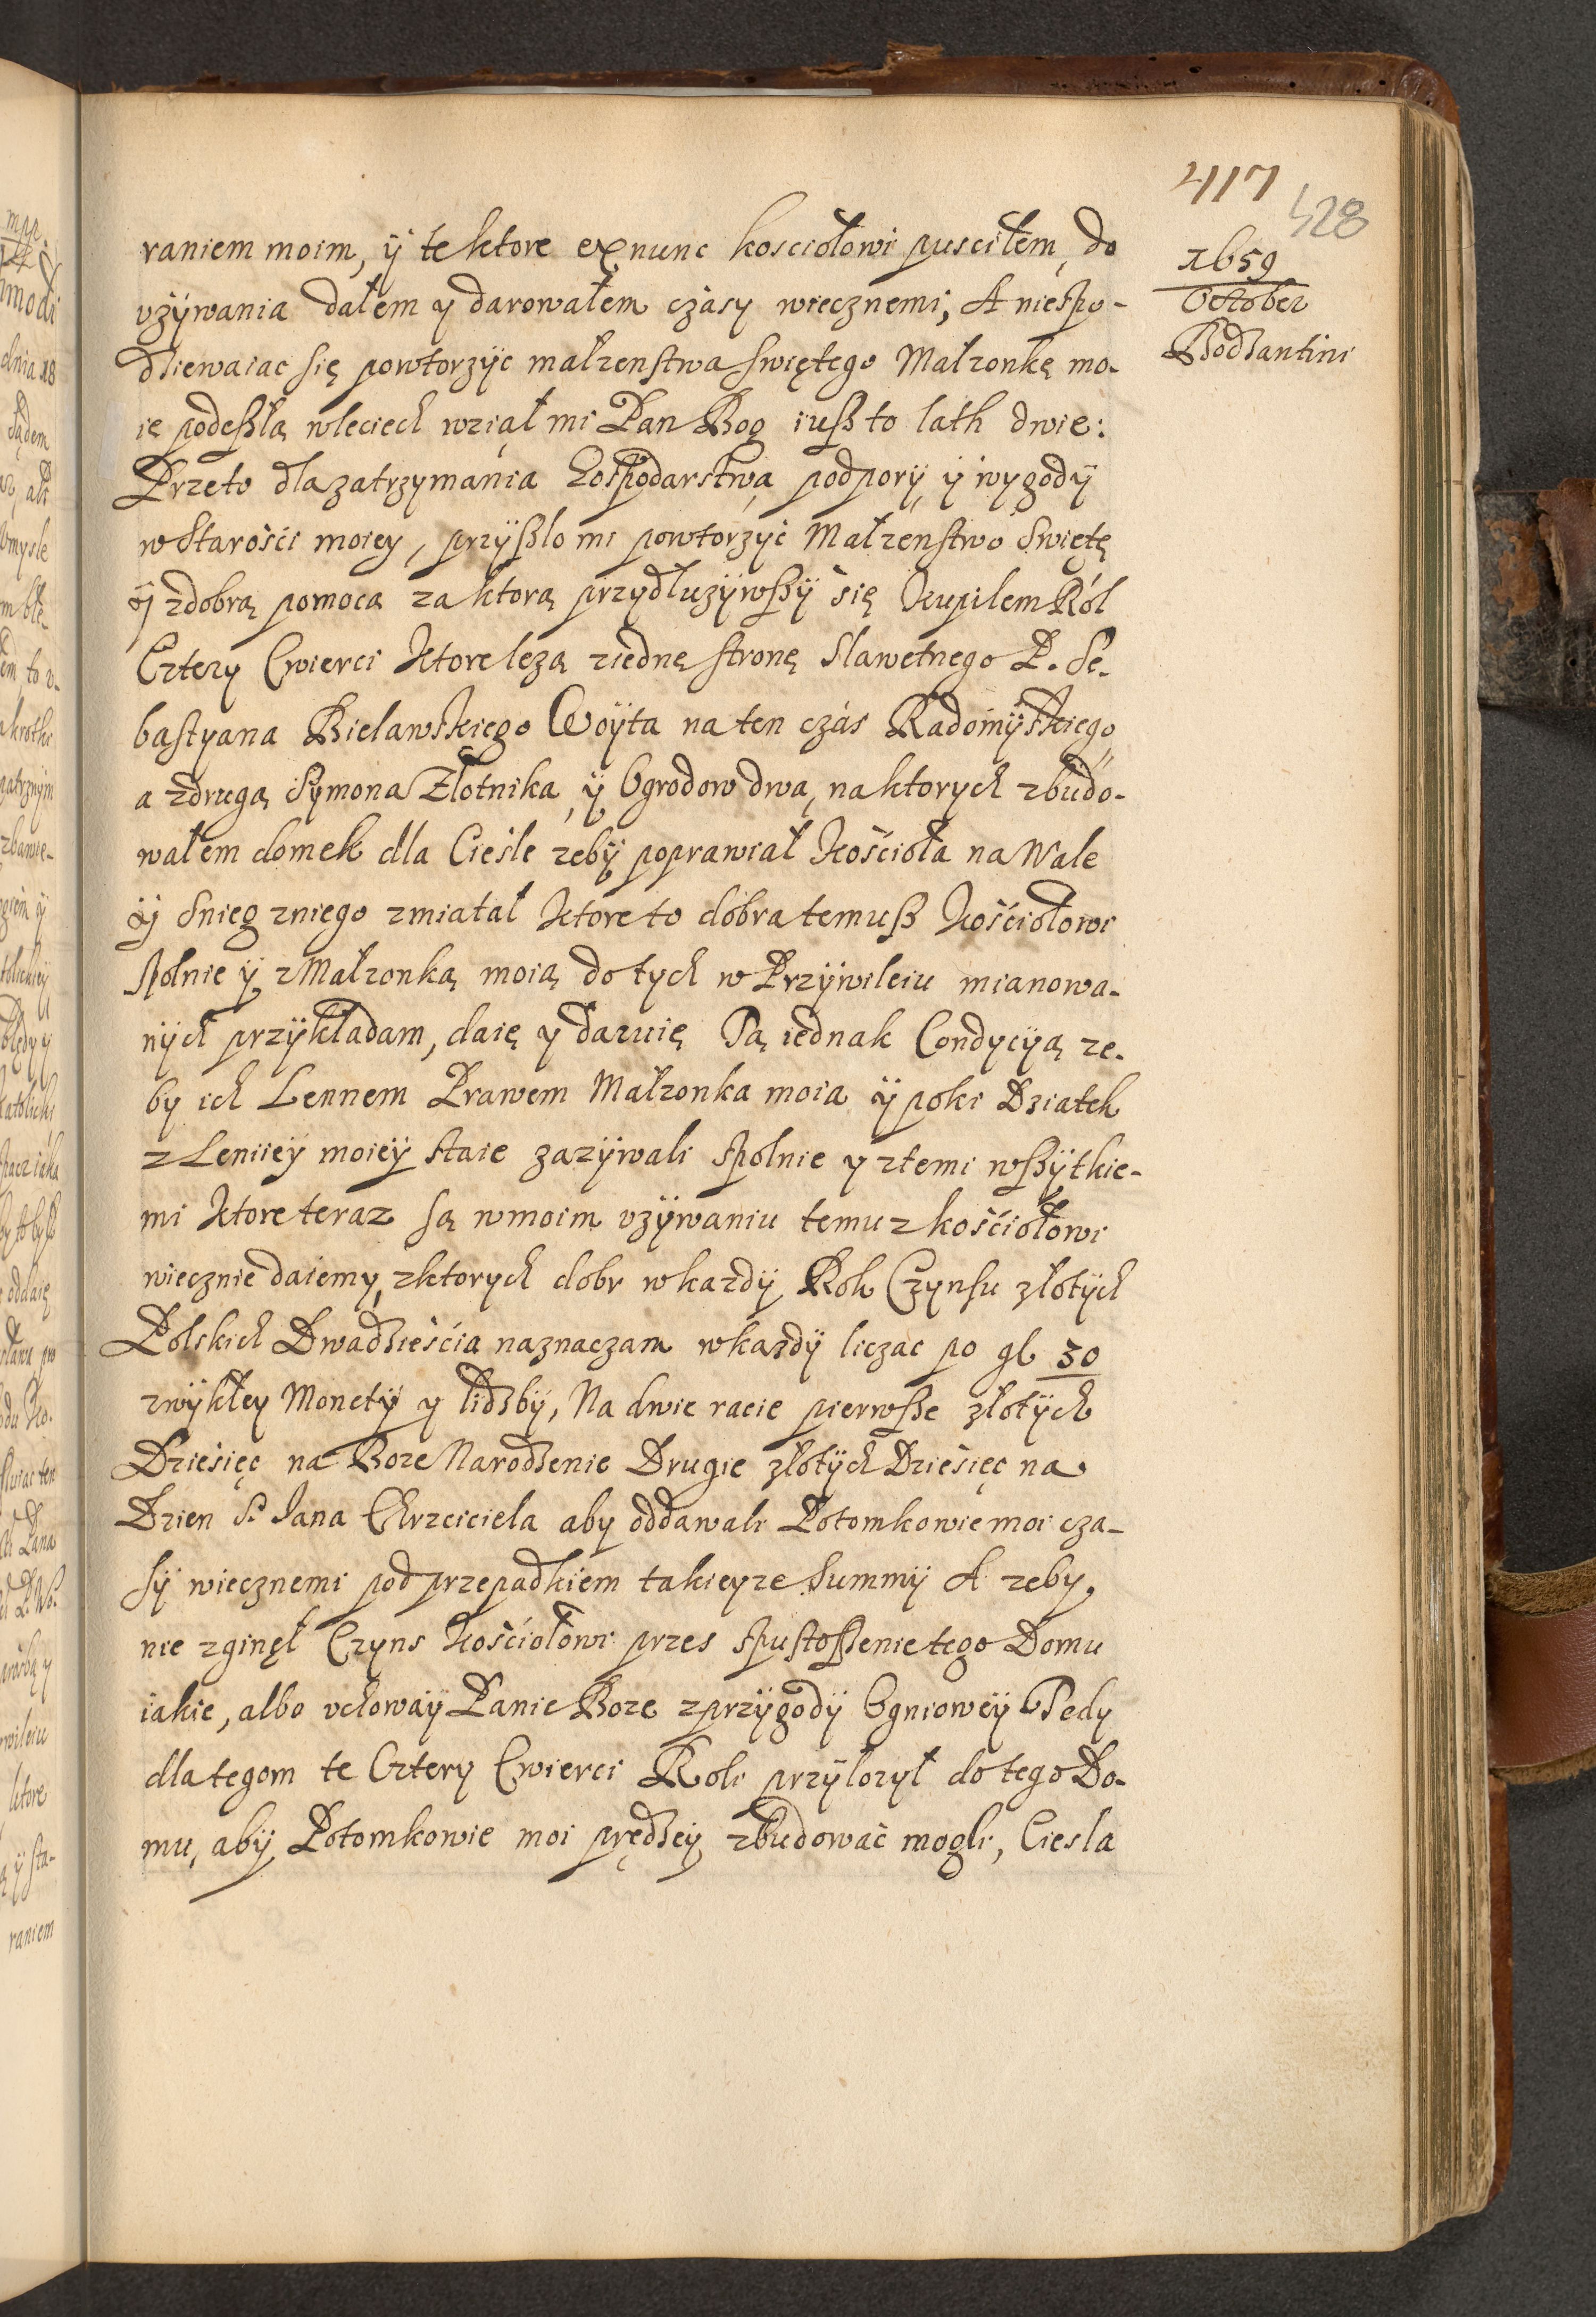 417
428
1659
October
Bodzantini
raniem moim, ÿ te ktore ex nunc kosciołowi pusciłem, do
vzÿwania dałem y darowałem czásy wiecznemi, A niespo-
dziewaiac się powtorzÿc małzenstwa swiętego Małzonkę mo-
ię podeszłą wleciech wziął mi Pan Bog iusz to lath dwie:
Przeto dla zatrzymania Gospodarstwa podporÿ ÿ wygodÿ
w Starości moiey, przÿszło mi powtorzÿć Małzenstwo Swiętę
ÿ zdobrą pomocą za ktorą przydłuzÿwszÿ się Kupilem Ról
Cztery Cwierci Ktore lezą ziednę stronę Slawetnego P. Se-
bastyana Bielawskiego Woÿta na ten czás Radomÿskiego
a zdrugą Symona Złotnika ÿ Ogrodow dwa, na ktorych zbudo-
wałem domek dla Cieśle zebÿ poprawiał Kościoła na Wale
ÿ Snieg zniego zmiatał Ktore to dobra temusz Kościołowi
spolnie ÿ z Małzonką moią do tych w Przÿwileiu mianowa-
nÿch przÿkładam, daię y daruię Tą iednak Condycÿą ze-
by ich Lennem Prawem Małzonka moia ÿ poki Dziatek
z Leniieÿ moieÿ staie zazÿwali spolnie y ztemi wszÿtkie-
mi Ktore teraz są wmoim vzÿwaniu temuz kościołowi
wiecznie daiemy, zktorych dobr w kazdÿ Rok Czynsu złotÿch
Polskich Dwadzieścia naznaczam wkazdÿ liczac po gl 30
zwÿkłey Monetÿ y lidzbÿ, Na dwie racie pierwsze złotÿch
Dziesięc na Boze Narodzenie Drugie złotÿch Dziesięc na
Dzien S. Jana Chrzciciela aby oddawali Potomkowie moi cza-
sÿ wiecznemi pod przepadkiem takieyze Summÿ A zeby
nie zginęł Czyns Kościołowi przes spustoszenie tego Domu
iakie, albo vchowaÿ Panie Boze zprzÿgodÿ Ogniowëÿ Tedy
dla tegom te Cztery Cwierci Roli przÿlozÿł do tego Do-
mu, abÿ Potomkowie moi prędzeÿ zbudowáć mogli, Ciesla